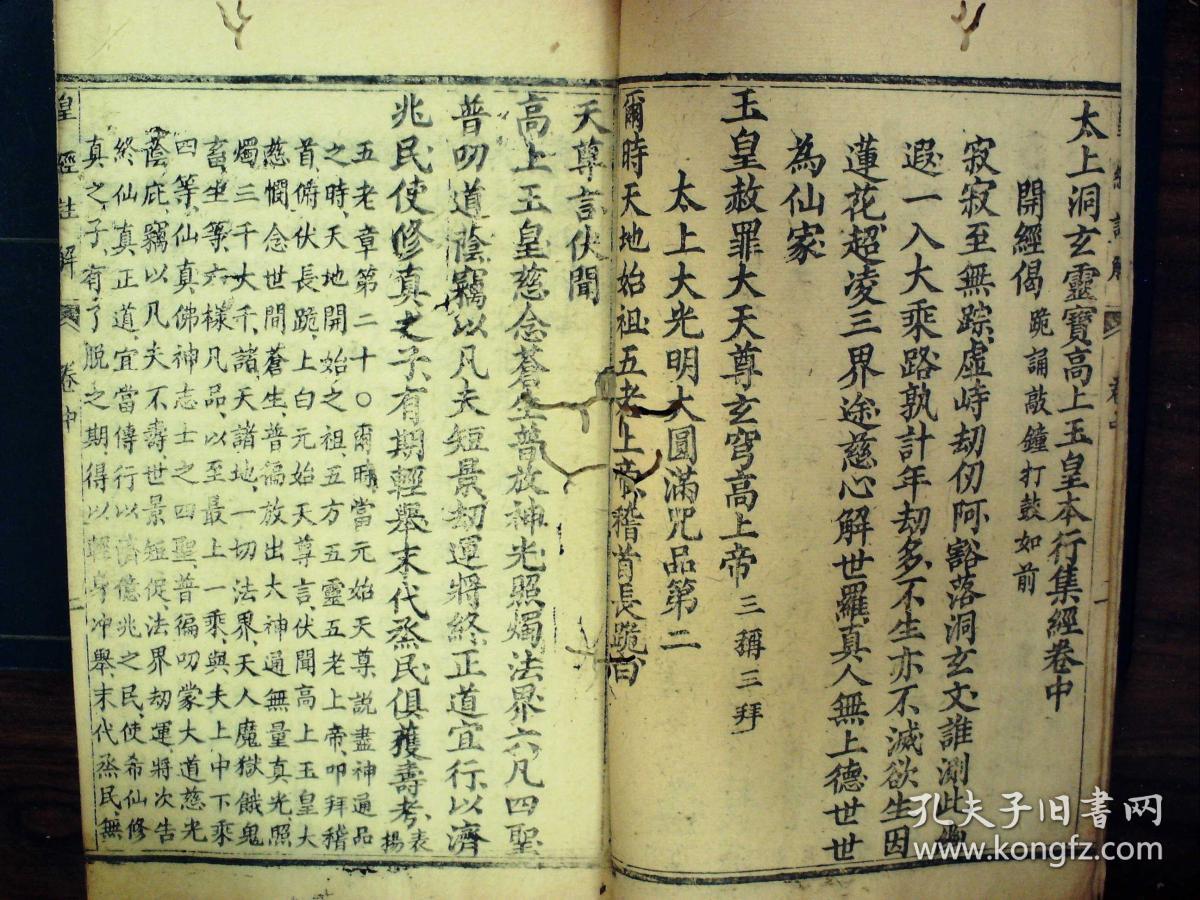 太上洞玄靈寶高上玉皇本行集經卷中
開經偈 跪誦敲鐘打鼓如前
寂寂至無踪、虛峙劫仞阿、豁落洞玄文、誰測此幽
遐、一入大乘路、孰計年劫多、不生亦不滅、欲生因
蓮花、超凌三界途、慈心解世羅、真人無上德、世世
為仙家
玉皇赦罪大天尊玄穹高上帝 三稱三拜
太上大光明大圓滿咒品第二
爾時天地始祖五老上帝、稽首長跪白
天尊言、伏聞
高上玉皇慈念蒼生、普放神光、照燭法界、六凡四聖
普叨道蔭、竊以凡夫短景、劫運將終、正道宜行、以濟
兆民、使修真之子、有期輕舉、末代烝民、俱獲壽考、表揚
五老章第二十〇爾時當元始天尊說盡神通品
之時、天地開始之祖、五方五靈五老上帝、叩拜稽
首、俯伏長跪、上白元始天尊言、伏聞高上玉皇大
慈憫念世間蒼生、普徧放出大神通無量真光、照
燭三千大千、諸天諸地、一切法界、天人魔獄餓鬼
畜生等、六樣凡品、以至最上一乘、與夫上中下乘
四等、仙真佛神志士之四聖、普徧叨蒙大道慈光
蔭庇、竊以凡夫不壽、世景短促、法界劫運、將次告
終、仙真正道、宜當傳行、以濟億兆之民、使希仙修
真之子、有了脫之期、得以輕身冲舉、末代烝民、無
皇經註解 卷中 二
孔夫子旧书网
www.kongfz.com